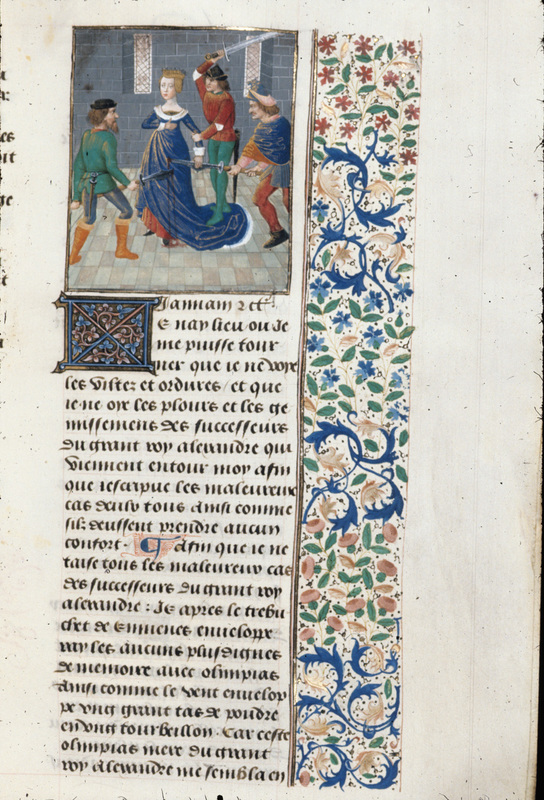 Jamiam ꝛ cet
E nay lieu ou Je
me puisse tour
ner que ie ne voye
les vistez et ordures / et que
ie ne oye les plours et les ge
missemens des successeurs
du grant roy alexandre qui
viennent entour moy afin
que iescripue les maleureux
cas deulx tous ainsi comme
silz deussent prendre aucun
confort. Afin que ie ne
taise tous les maleureux cas
des successeurs du grant roy
alexandre: Je apres le trebu
chet de eumenes enveloppe
ray les aucuns plus dignes
de memoire avec olimpias
Ainsi comme le vent envelop
pe ung grant tas de pouldre
en ung tourbeillon. Car ceste
olimpias mere du grant
roy alexandre me sembla en